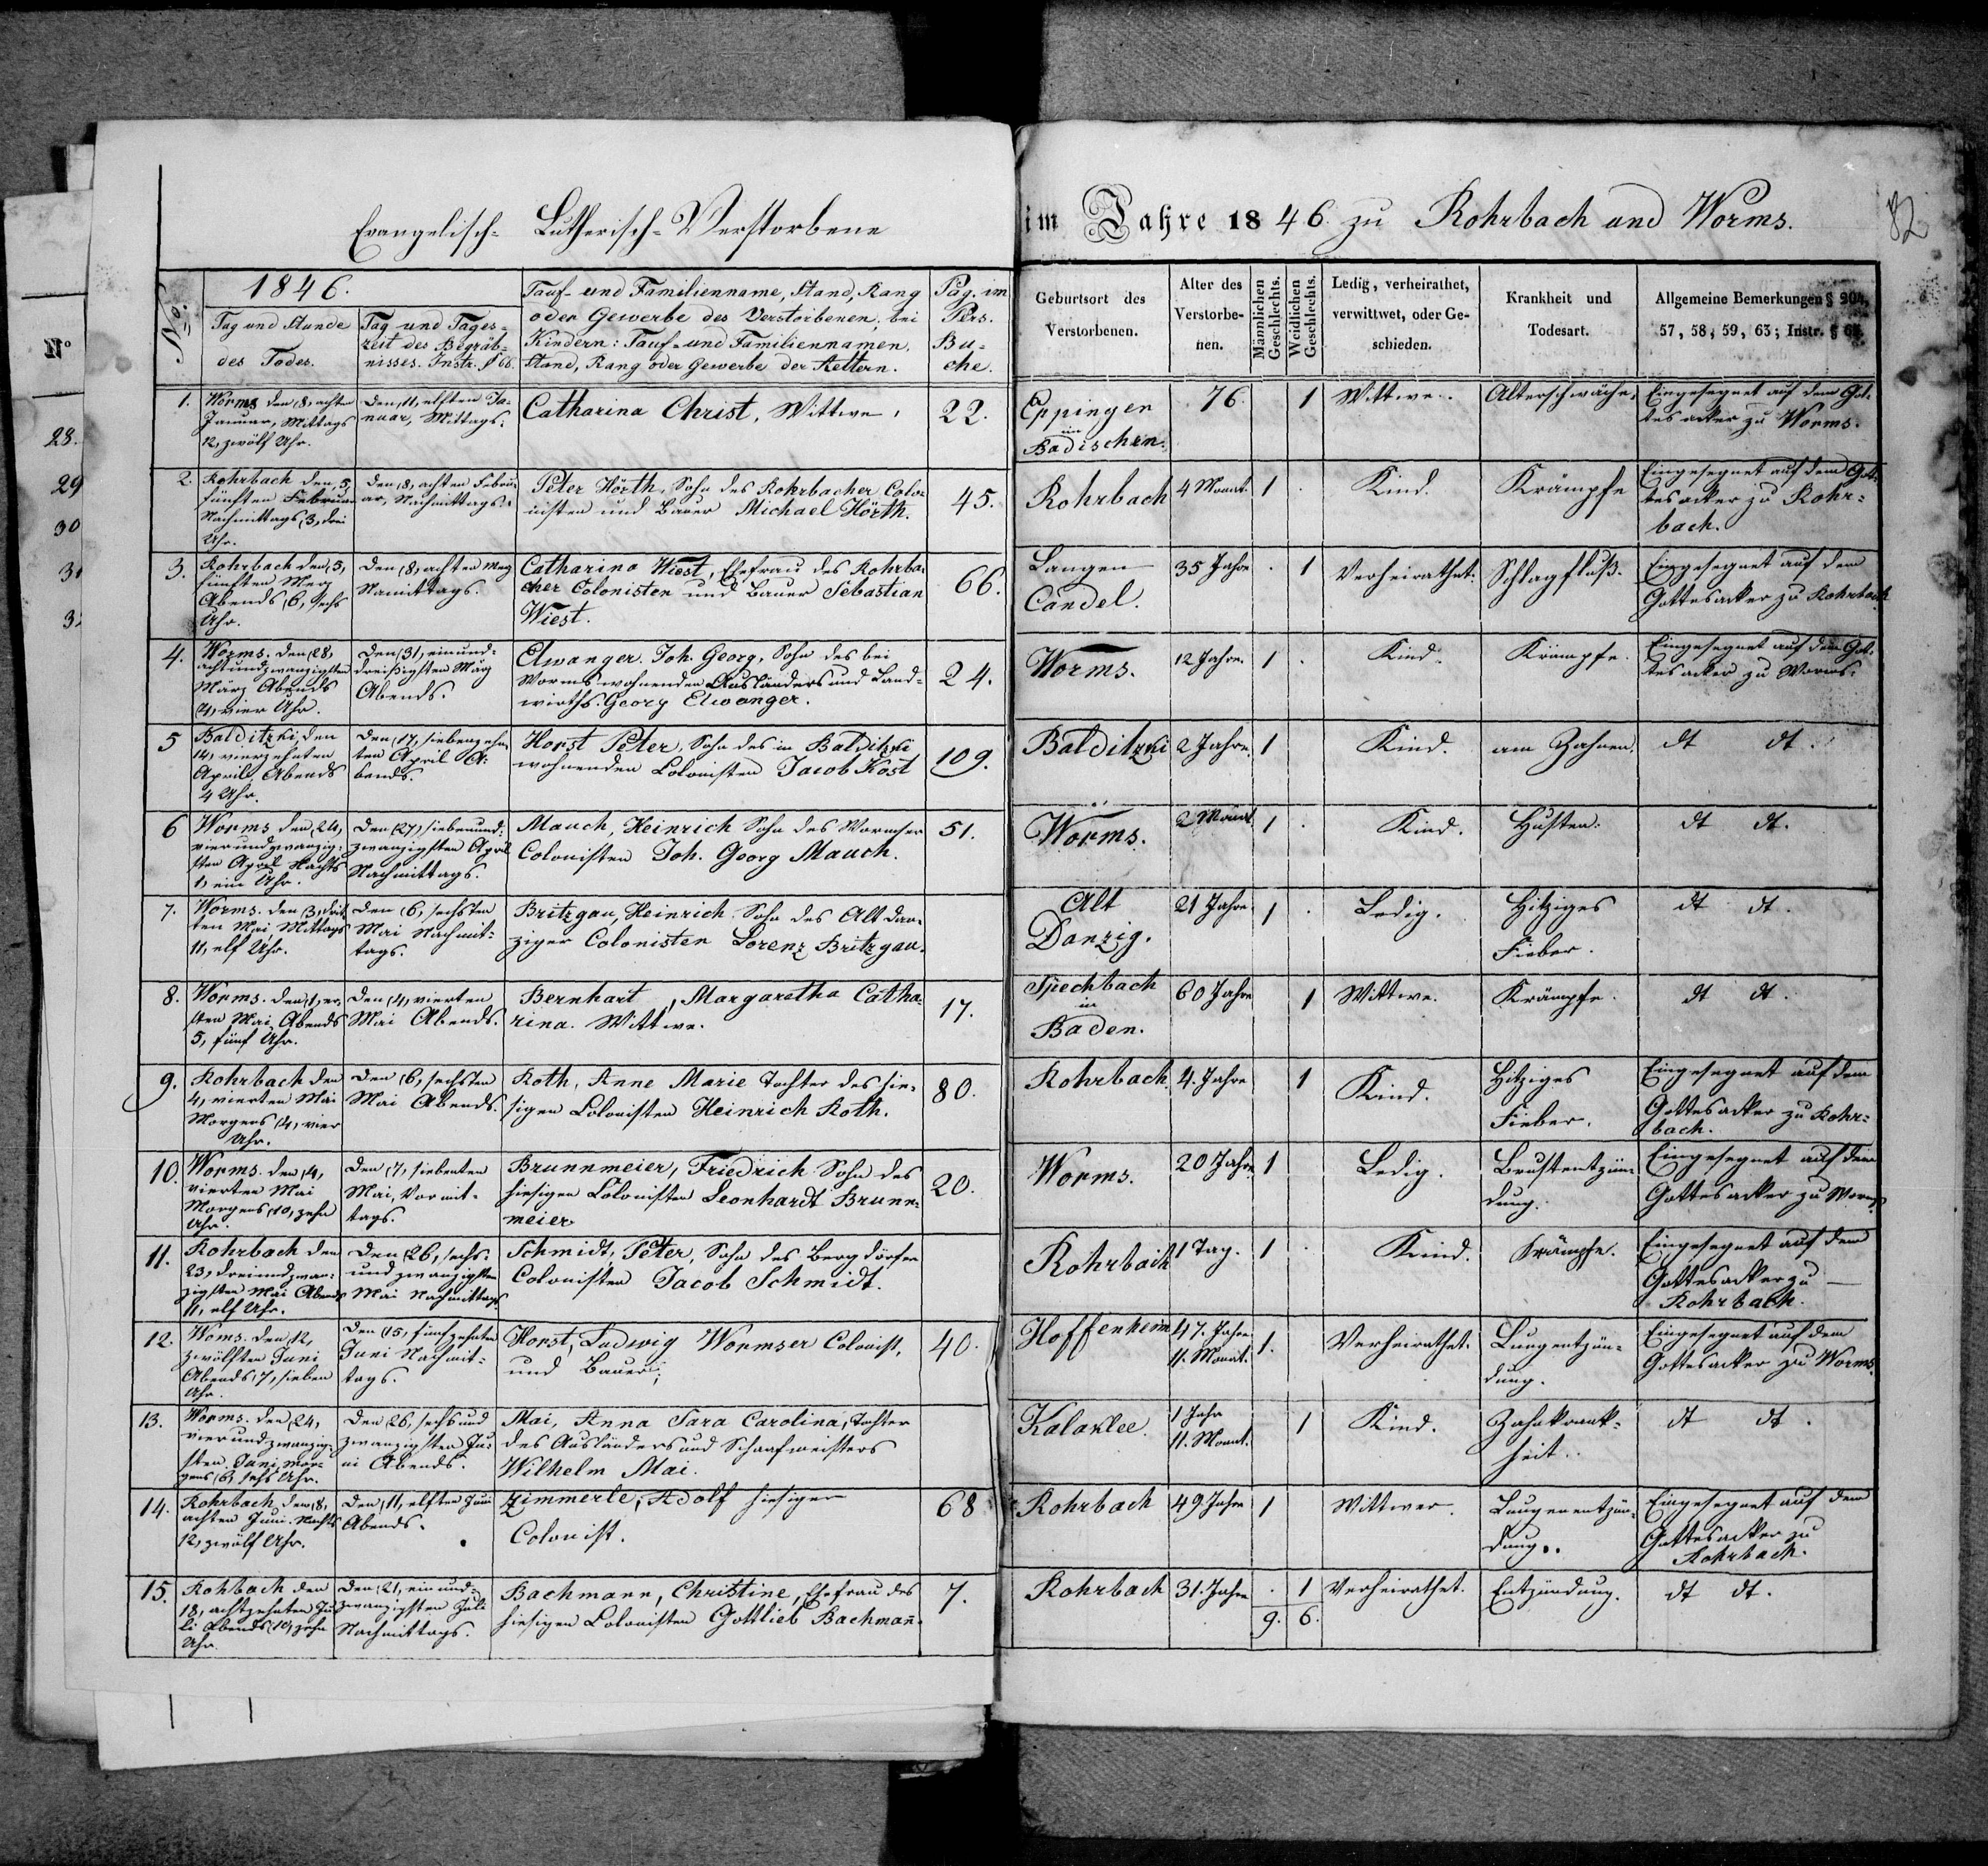 Evangelisch- Lutherisch-Verstorbene
im Jahre 1846. zu Rohrbach und Worms.
82
No:
1846.
Tag und Stunde
des Todes.
Tag und Tages-
zeit des Begräb-
nisses. Instr. § 66.
Tauf- und Familienname, Stand, Rang
oder Gewerbe des Verstorbenen, bei
Kindern: Tauf- und Familiennamen,
Stand, Rang oder Gewerbe der Aeltern.
Pag. im
Pers.
Bu-
che.
Geburtsort des
Verstorbenen.
Alter des
Verstorbe-
nen.
Männlichen
Geschlechts.
Weiblichen
Geschlechts.
Ledig, verheirathet,
verwittwet, oder Ge-
schieden.
Krankheit und
Todesart.
Allgemeine Bemerkungen § 204,
57, 58, 59, 63; Instr. §
N°
28.
29
30
31
1.
Worms den (8, achten
Januar, Mittags
12, zwölf Uhr.
Den (11, elften Ja-
nuar, Mittags.
Catharina Christ, Wittwe,
22.
Eppingen
im
Badischen.
76.
1
Wittwe.
Altersschwäche.
Eingesegnet auf dem Got-
tesacker zu Worms.
2.
Rohrbach den 5,
fünften Februar
Nachmittags (3, drei
Uhr.
Den (8, achten Febru-
ar, Nachmittags.
Peter Hörth, Sohn des Rohrbacher Colo-
nisten und Bauer Michael Hörth.
45.
Rohrbach
4 Monat.
1
Kind.
Krämpfe
Eingesegnet auf dem Got-
tesacker zu Rohr-
bach.
3.
Rohrbach den (5,
fünften Merz
Abends (6, sechs
Uhr.
Den (8, achten Merz
Namittags.
Catharina Wiest, Ehefrau des Rohrba-
cher Colonisten und Bauer Sebastian
Wiest.
66.
Langen
Candel.
35 Jahre
1
Verheirathet.
Schlagfluß.
Eingesegnet auf dem
Gottesacker zu Rohrbach
4.
Worms. den (28,
achtundzwanzigsten
März Abends
(4, vier Uhr.
Den (31, einund-
dreißigsten März
Abends.
Elwanger. Joh. Georg, Sohn des bei
Worms wohnenden Ausländers und Land-
wirths. Georg Elwanger.
24.
Worms.
12 Jahre.
1
Kind.
Krämpfe.
Eingesegnet auf dem Got-
tesacker zu Worms.
5
Balditzki, den
14, vierzehnten
April, Abends
4 Uhr.
Den (17, siebenzehn-
ten April A-
bends.
Horst Peter, Sohn des in Balditzki
wohnenden Colonisten Jacob Host
109.
Balditzki
2 Jahre.
1
Kind.
am Zahnen.
dt dt.
6
Worms den (24,
vierundzwanzig-
sten April Nachts
1, ein Uhr.
Den (27, siebenund-
zwanzigsten April
Nachmittags.
Mauch, Heinrich Sohn des Wormser
Colonisten Joh. Georg Mauch.
51.
Worms.
2 Monat
1
Kind.
Husten.
dt dt.
7.
Worms. den (3, drit-
ten Mai, Mittags
11, elf Uhr.
Den (6, sechsten
Mai Nachmit-
tags.
Britzgau, Heinrich Sohn des Alt dan-
ziger Colonisten Lorenz Britzgau.
Alt
Danzig.
21 Jahre
1
Ledig.
Hitziges
Fieber.
dt dt.
8.
Worms. den (1, er-
sten Mai, Abends
5, fünf Uhr.
Den (4, vierten
Mai Abends.
Bernhart, Margaretha Catha-
rina. Wittwe.
17.
Spechbach
in
Baden.
60 Jahre
1
Wittwe.
Krämpfe.
dt dt.
9.
Rohrbach den
4, vierten Mai
Morgens (4, vier
Uhr.
Den (6, sechsten
Mai Abends.
Roth, Anne Marie Tochter des hie-
sigen Colonisten Heinrich Roth.
80.
Rohrbach
4. Jahre
1
Kind.
Hitziges
Fieber.
Eingesegnet auf dem
Gottesacker zu Rohr-
bach.
10.
Worms. den (4,
vierten Mai
Morgens (10, zehn
Uhr.
Den (7, siebenten
Mai, Vormit-
tags.
Brunnmeier, Friedrich Sohn des
hiesigen Colonisten Leonhardt Brunn-
meier
20.
Worms.
20 Jahre
1
Ledig.
Brustentzün-
dung.
Eingesegnet auf dem
Gottesacker zu Worms
11.
Rohrbach den
23, dreiundzwan-
zigsten Mai Abends
11, elf Uhr.
Den (26, sechs-
undzwanzigsten
Mai Nachmittags
Schmidt, Peter, Sohn des Bergdörfer
Colonisten Jacob Schmidt.
Rohrbach
1 Tag.
1
Kind.
Krämpfe.
Eingesegnet auf dem
Gottesacker zu
Rohrbach.
12.
Woms. den 12,
zwölften Juni
Abends, 7, sieben
Uhr.
Den (15, fünfzehnten
Juni Nachmit-
tags.
Horst, Ludwig Wormser Colonist,
und Bauer;
40.
Hoffenheim
47. Jahre
11. Monat.
1.
Verheirathet.
Lungentzün-
dung.
Eingesegnet auf dem
Gottesacker zu Worms.
13.
Worms. den (24,
vierundzwanzig-
sten Juni, mor-
gens (6, sechs Uhr.
Den (26, sechsund
zwanzigsten Ju-
ni Abends.
Mai, Anna Sara Carolina, Tochter
des Ausländers und Schaafmeisters
Wilhelm Mai.
Kalaklee.
1 Jahr
11. Monat.
1
Kind.
Zahnkrank-
heit.
dt dt.
14.
Rohrbach, den (8,
achten Juni. Nachts
12, zwölf Uhr.
Den (11, elften Juni
Abends.
Zimmerle, Adolf hiesiger
Colonist.
68
Rohrbach
49 Jahre
1
Wittwer.
Lungenentzün-
dung.
Eingesegnet auf dem
Gottesacker zu
Rohrbach.
15.
Rohbach den
18, achtzehnten Ju-
li Abends (10, zehn
Uhr.
Den (21, einund-
zwanzigsten Juli
Nachmittags.
Bachmann, Christine, Ehefrau des
hiesigen Colonisten Gottlieb Bachmañ.
7.
Rohrbach
31. Jahre
1
Verheirathet.
Entzündung.
dt dt.
9. 6.